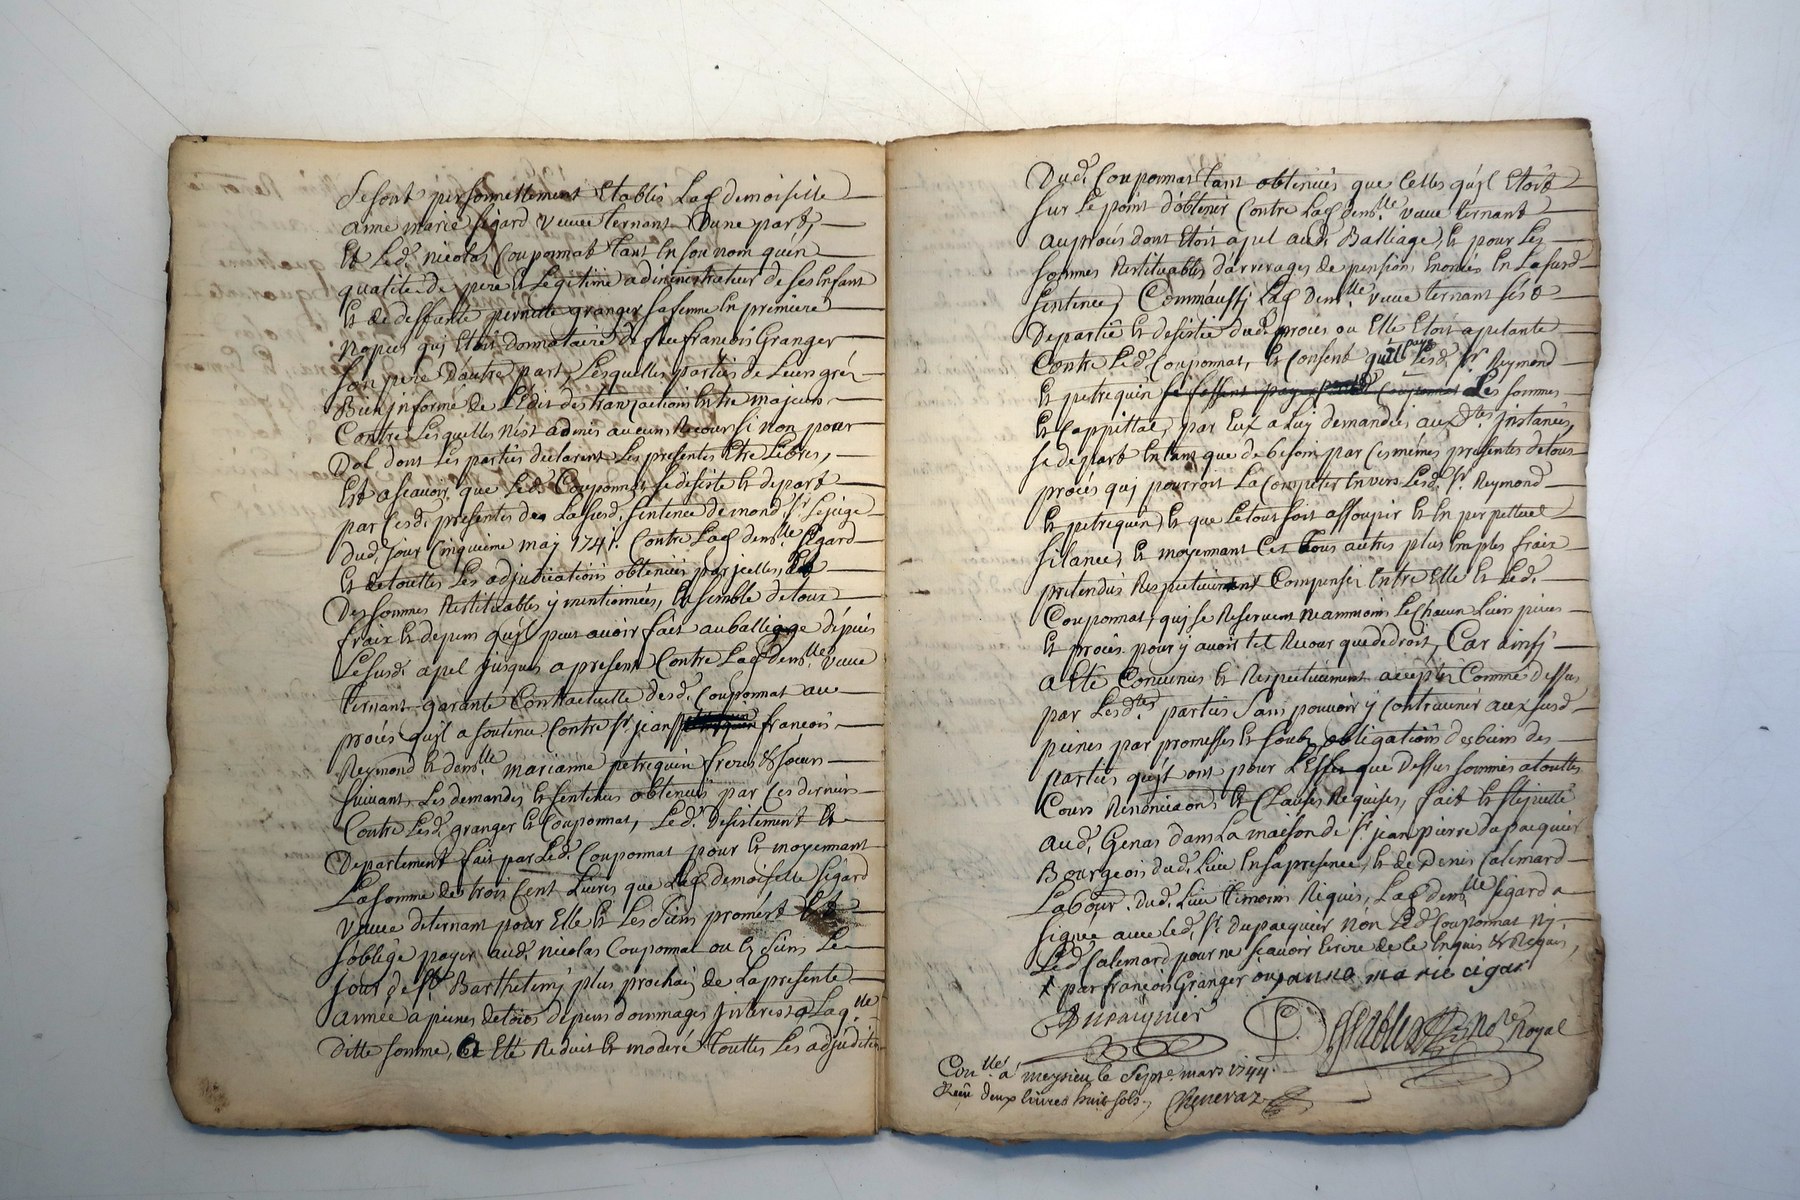 Se sont personnellement Etablis Lad demoiselle
anne marie Sigard veuve ternant Dune part,
Et Led. nicolas Couponnat tant En son nom qu'en
qualité de pere & Legitime administrateur de ses Enfant
& de deffunte pernette granger sa femme En premiere
nopces quj Etoit donnataire de feu francois Granger
son pere D'autre part, Lesquelles parties de Leurs gréz
Bien jnformé de L'Edit des transactions Entre majeurs
Contre Lesquelles n'est admis aucuns Recour si non pour
Dol dont Les parties declarent Les presentes Etre Libres,
Est a scavoir, que Led. Couponnat se desiste & depart
par Cesd. presentes de La susd. sentence de mond. Sr. Lejuge
dud. jour Cinquieme may 1741. Contre Lad demlle Sigard
& de touttes Les adjudications obtenües par jcelles,
Des sommes Restituables y mentionnées, Ensemble de tous
fraix & depens qu'jl peut avoir fait au balliage depuis
Le susd. apel jusques a present Contre Lad demlle veuve
ternant garante Contractuelle desd. Couponnat au
procés qu'jl a soutenu Contre Sr. jean francois
Reymond & demlle marianne petrequin freres & soeurs
suivant Les demandes & sentences obtenües par Ces derniers
Contre Lesd. granger & Couponnat, Led. desistement &
Departement fait par Led. Couponnat pour & moyennant
La somme de trois Cent Livres que Lad demoiselle Sigard
veuve de ternant pour Elle & Les Siens promést
s'oblige payer aud. nicolas Couponnat ou Es Siens Le
jour de St. Barthelemj plus prochaj de La presente
année a peines de tous depens dommages jnterest a Laqlle
ditte somme, Eté Reduit & moderé touttes Les adjudications
Dud. Couponnat tant obtenües que Celles qu'jl Etoit
sur Le point d'obtenir Contre Lad demlle veuve ternant
au procés dont Etoit apel aud. Balliage, & pour Les
sommes Restituables d'arrerages de pension, Enoncés En La susd.
sentence, Comm'aussj Lad demlle veuve ternant s'est
Departie & desistée dud. procés ou Elle Etoit apelante
Contre Led. Couponnat, & Consent qu'il paye Lesd. Sr. Reymond
& petrequin Les sommes
& Cappittal, par Eux a Luj demandées aux Dtes jnstances,
se depart En tant que de besoin par Ces mêmes presentes de tous
procés quj pourroit La Compéter Envers Lesd. Sr. Reymond
& petrequin, & que Le tout soit assoupir & En perpettuel
silance, & moyennant Ce tous autres plus Emples fraix
pretendus Respectivement Compensés Entre Elle & Led.
Couponnat, quj se Reservent neammoins Le Chacun Leurs pieces
& procés pour y avoir tel Recour que de droit, Car ainsj
a Eté Convenus & Respectivement accepté Comme dessus
par Lesdtes parties sans pouvoir y Contrevenir aux susd.
peines par promesses & soubz obligations des biens des
parties qu'jl ont pour L'Effet que Dessus sommis a touttes
Cours Renonciaons & Clauses Requises, fait & stipullé
aud. Genas dans La maison de Sr. jean pierre dupacquier
Bourgeois dud. Lieu En sa presence, & de Denis Calemard
Labour. dud. Lieu temoins Requis, Lad demlle Sigard a
signée avec Led. Sr. Dupacquier, non Led Couponnat nj
Led Calemard pour ne scavoir Ecrire de ce Enquis & Requis,
par francois Granger anna marie cigar
Dupacquier Nore Royal
Conllé a meysieu le Septe. mars 1744.
Receu deux livres huit sols. Cheneraz